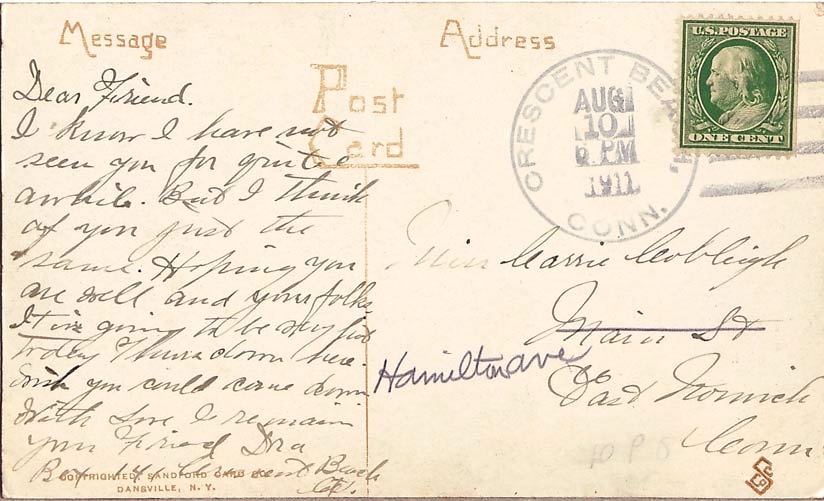 Message
Dear Friend.
I know I have not
seen you for quite
awhile. But I think
of you just the
same. Hoping you
are well and your folks.
It is going to be very hot
today Thurs down here.
Wish you could come down
With Love I remain
your Friend
Box 14 Crescent Beach
Ct.
COPYRIGHTED, SANDFORD CARD CO.
DANSVILLE, N. Y.
Post
Card
Address
CRESCENT BEACH,
AUG
10
6 PM
1911
CONN.
U.S. POSTAGE
ONE CENT
Miss Carrie Cobleigh
Main St
Hamilton ave
East Norwich
Conn